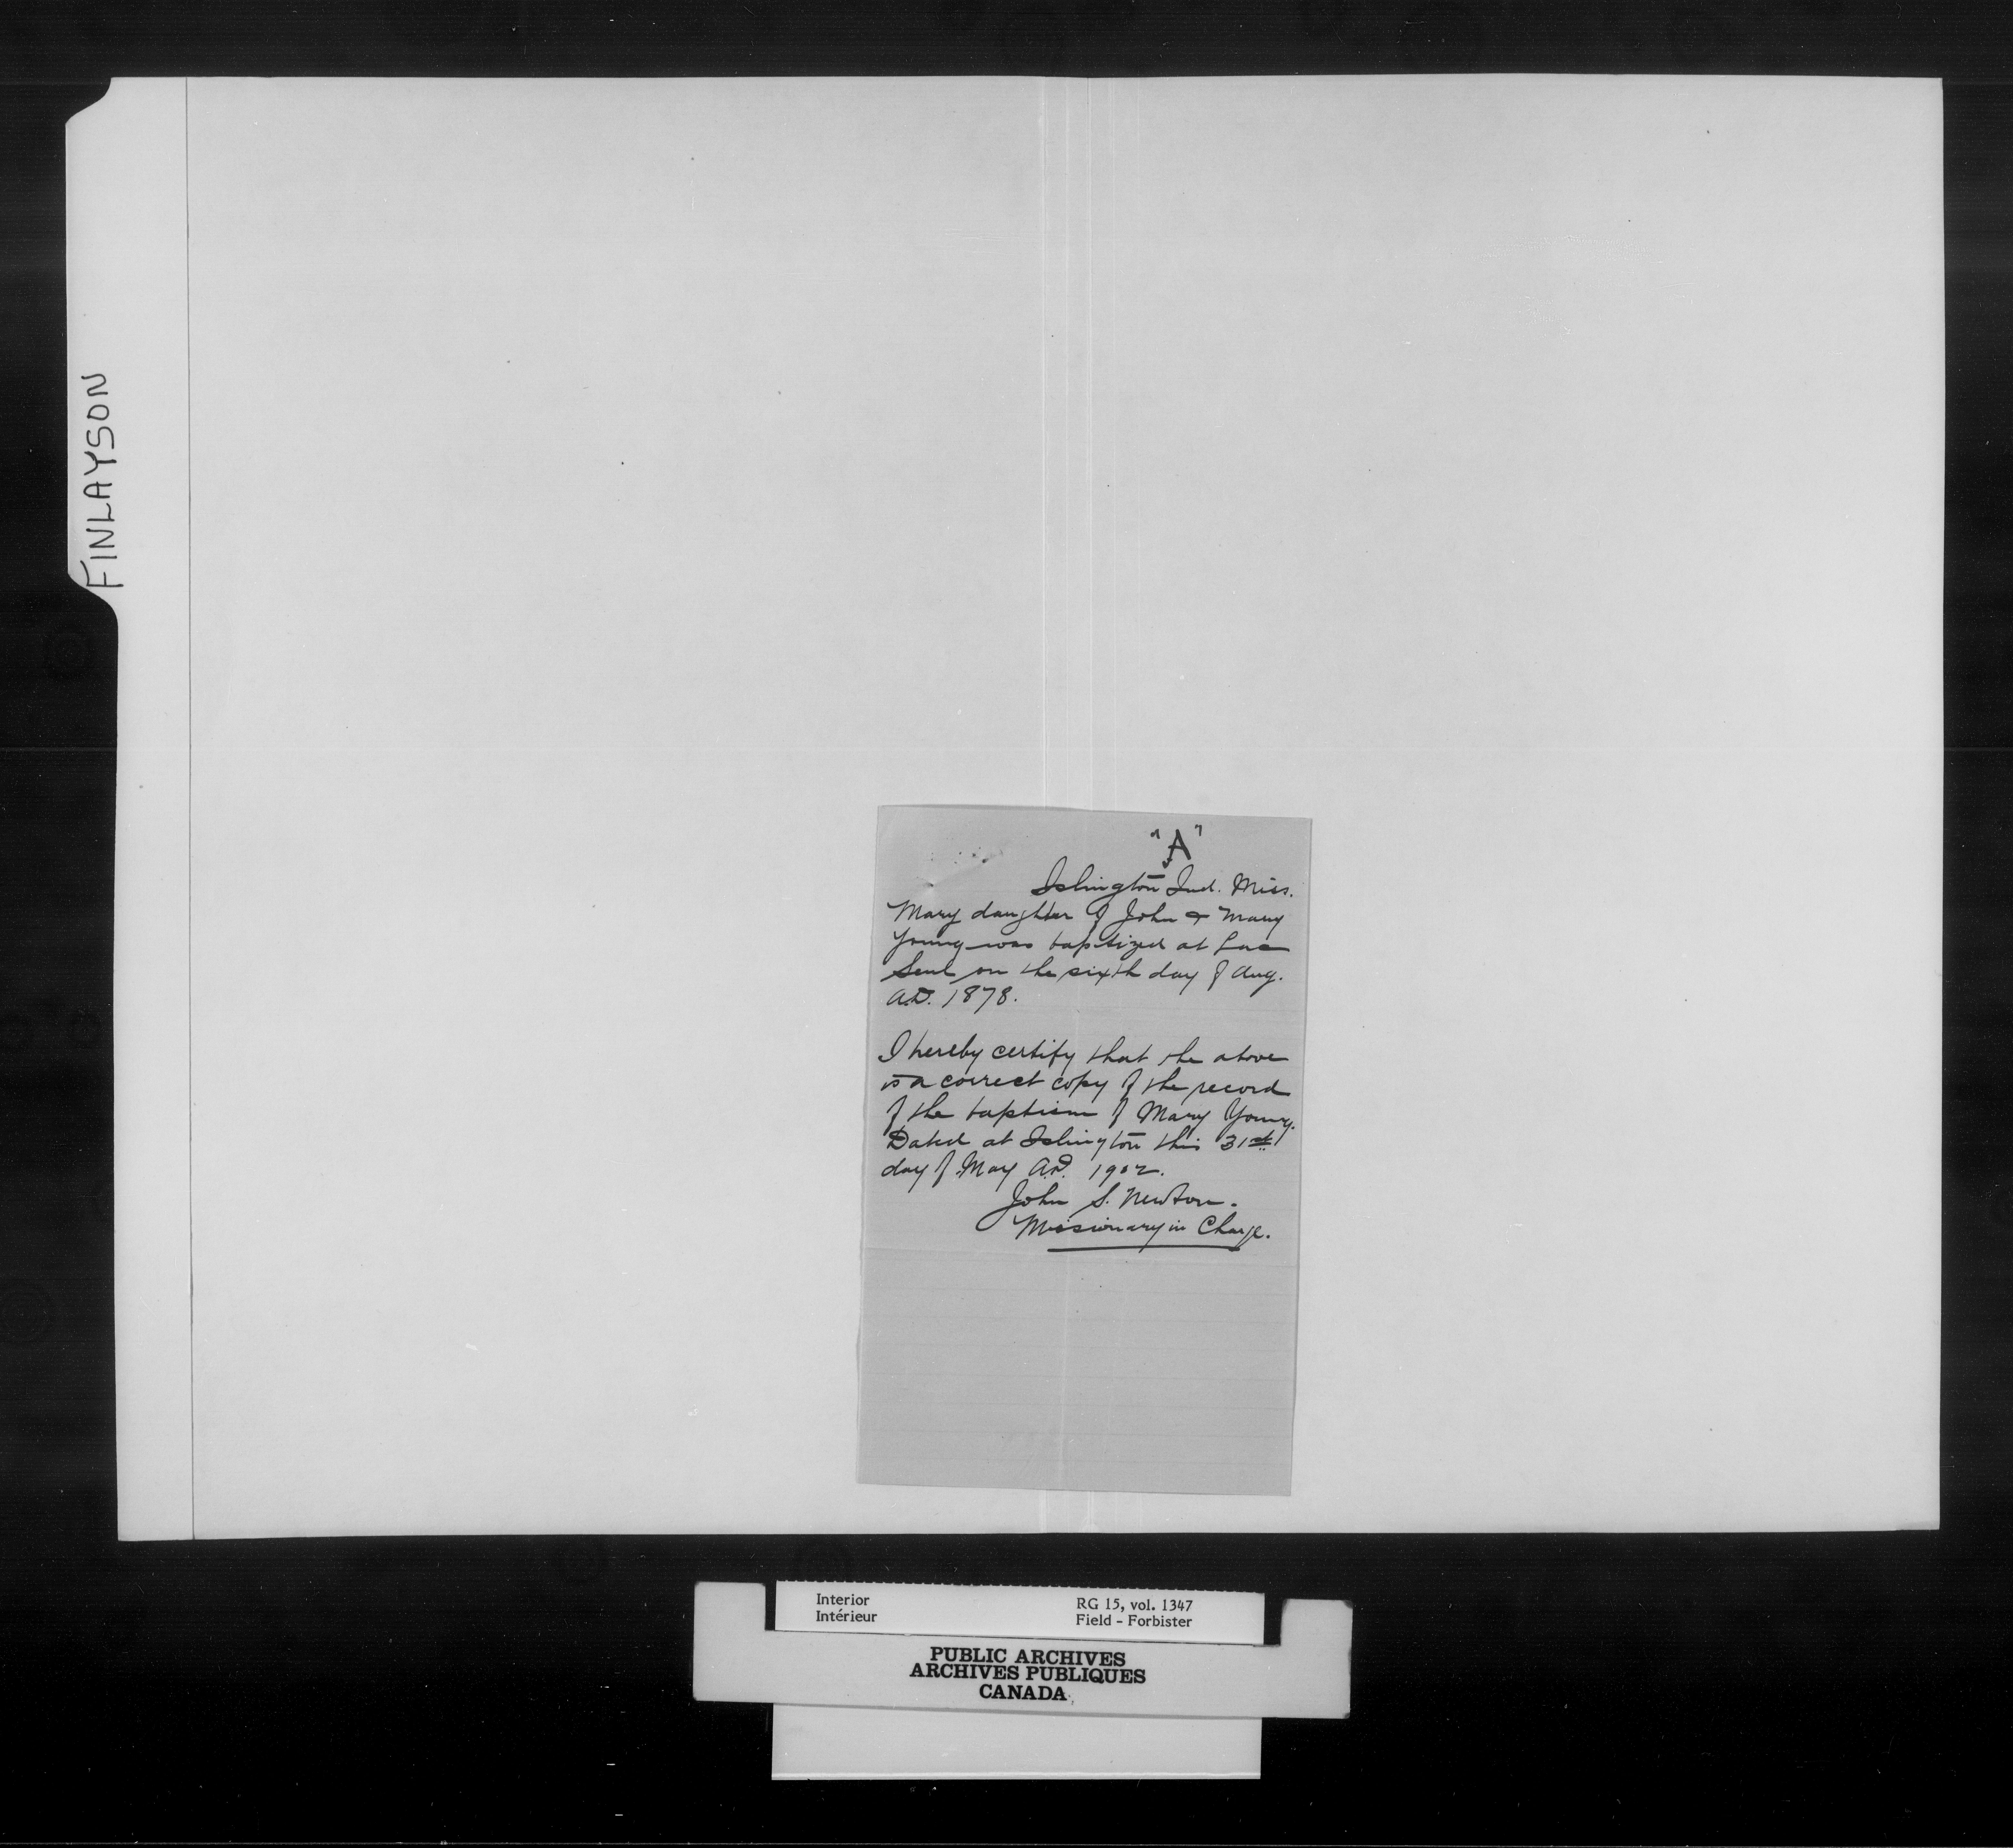 FINLAYSON
"A"
Islington Ind. Miss.
Mary daughter of John & Mary
Young was baptized at Lac
Seul on the sixth day of Aug.
A.D. 1878.
I hereby certify that the above
is a correct copy of the record
of the baptism of Mary Young.
Dated at Islington this 31st
day of May A.D. 1902.
John S. Newton.
Missionary in Charge.
Interior
Intérieur
RG 15, vol. 1347
Field - Forbister
PUBLIC ARCHIVES
ARCHIVES PUBLIQUES
CANADA